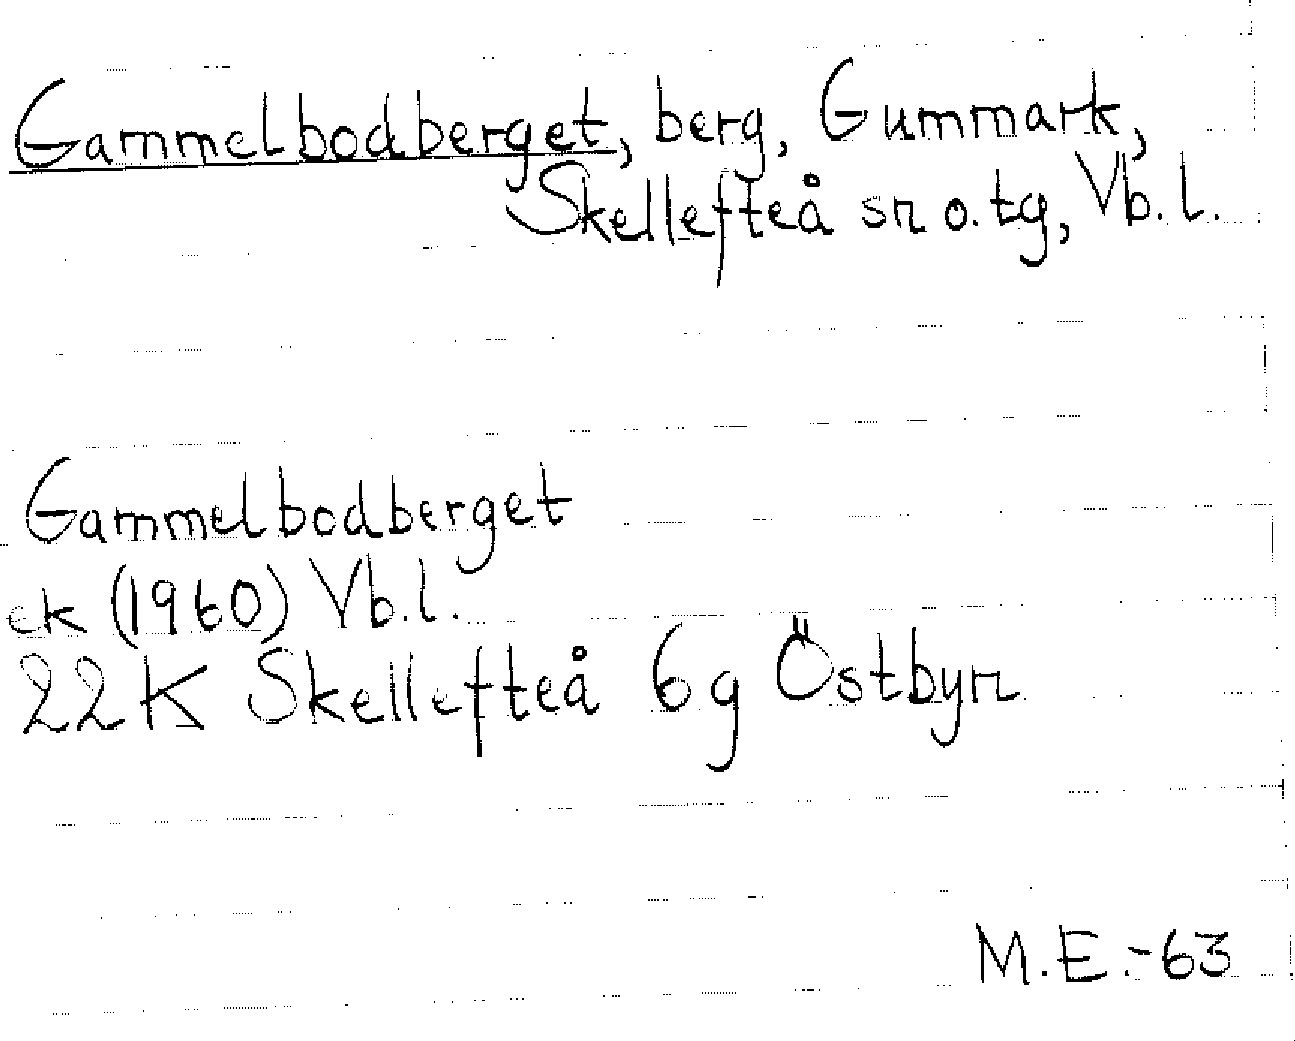 Gammelbodberget, berg, Gummark,
Skellefteå sn o. tg, Vb. l.
Gammelbodberget
ek (1960) Vb. l.
22K Skellefteå 6g Östbyn
M.E.-63